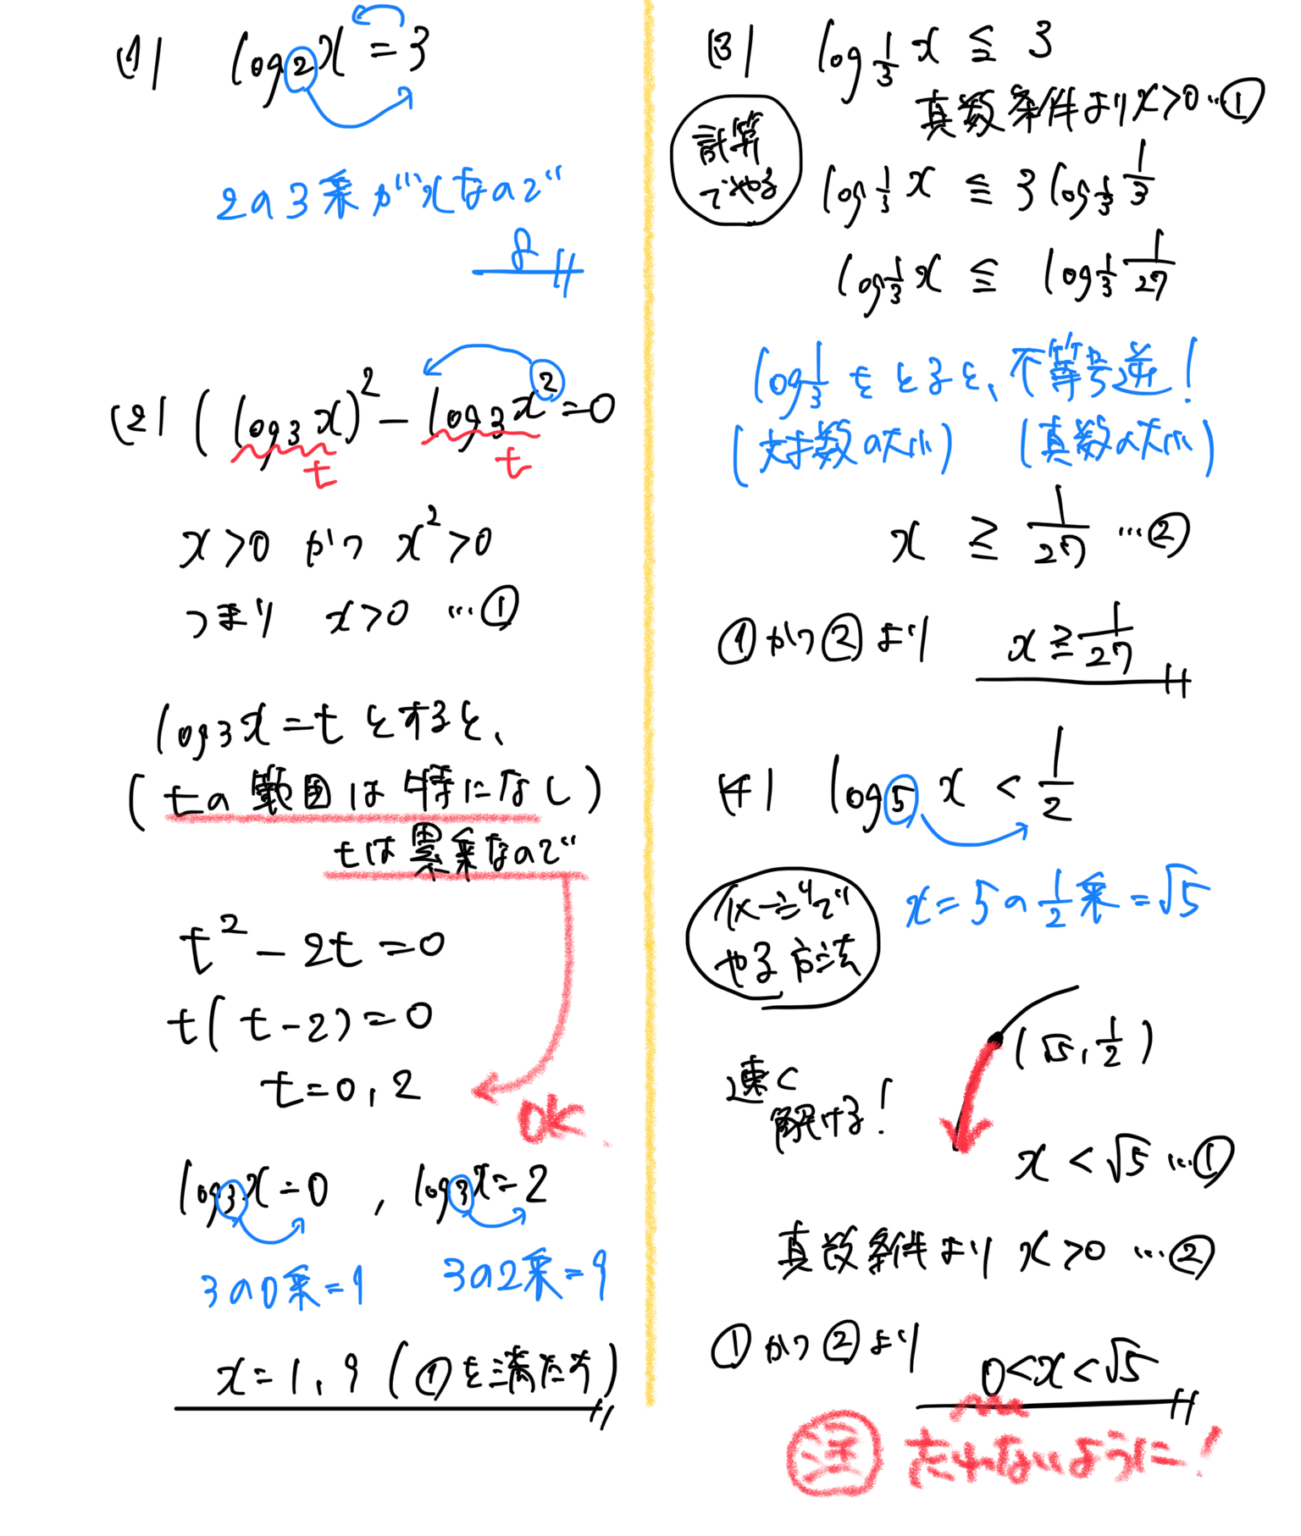 (1) log₂x = 3
2の3乗がxなので
8
(2) (log₃x)² − log₃x² = 0
t t
x>0 かつ x²>0
つまり x>0 …①
log₃x = t とすると、
(tの範囲は特になし)
tは累乗なので
t² − 2t = 0
t(t−2) = 0
t = 0, 2
OK
log₃x = 0 , log₃x = 2
3の0乗 = 1 3の2乗 = 9
x = 1, 9 (①を満たす)
(3) log_{1/3} x ≦ 3
真数条件より x>0 …①
計算
でやる
log_{1/3} x ≦ 3 log_{1/3} 1/3
log_{1/3} x ≦ log_{1/3} 1/27
log_{1/3} をとると、不等号逆!
(対数の大小) (真数の大小)
x ≧ 1/27 …②
①かつ②より x ≧ 1/27
(4) log₅x < 1/2
x = 5の1/2乗 = √5
やる方法
(√5, 1/2)
速く
解ける!
x < √5 …①
真数条件より x>0 …②
①かつ②より
0 < x < √5
注 忘れないように!